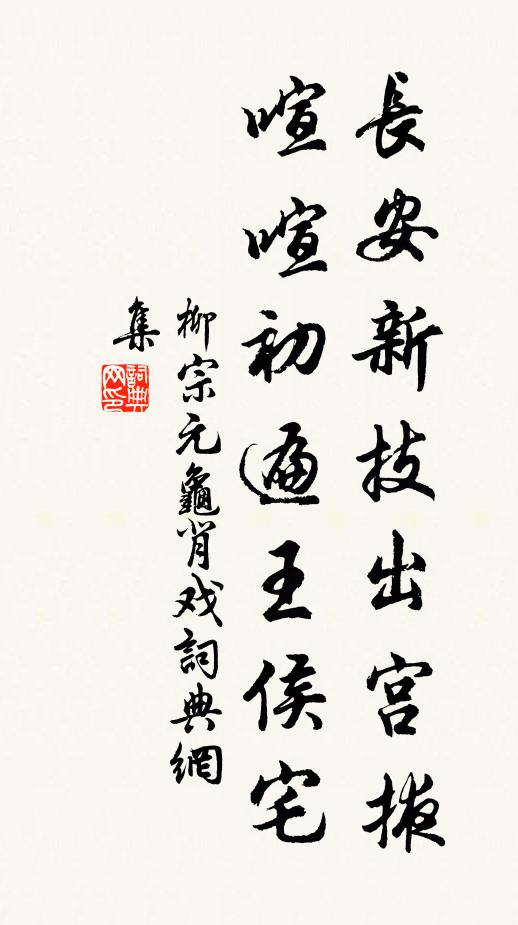 長安新技出宫掖
喧喧初遍王侯宅
柳宗元龜背戏詞典網
集
詞典
网印